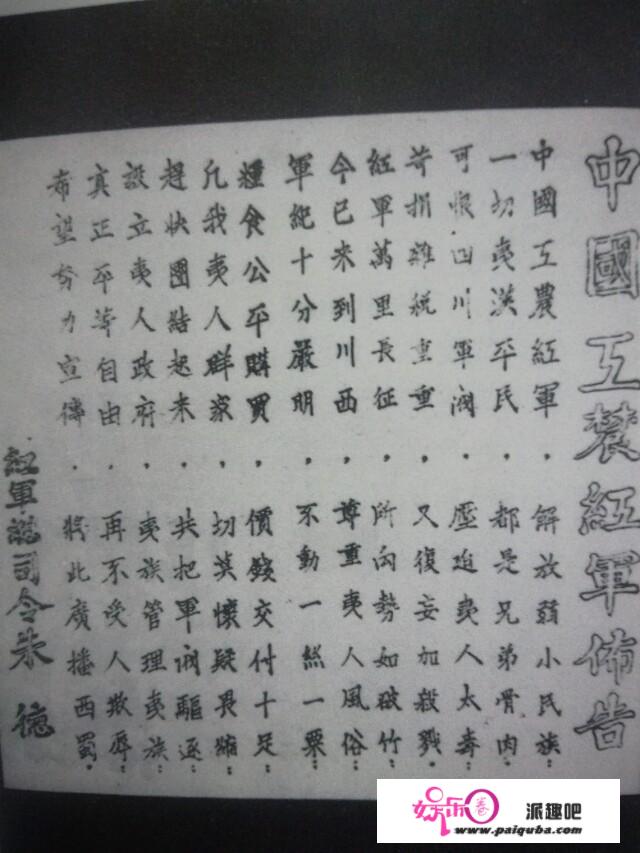 中國工農紅軍佈告
中國工農紅軍，解放弱小民族：
一切夷漢平民，都是兄弟骨肉：
可恨四川軍閥，壓迫夷人太毒：
苛捐雜税重重，又復妄加殺戮．
紅軍萬里長征，所向勢如破竹：
今已來到川西，尊重夷人風俗：
軍紀十分嚴明，不動一絲一粟：
糧食公平購買，價錢交付十足：
凡我夷人群眾，切莫懷疑畏縮：
趕快團結起來，共把軍閥驅逐：
設立夷人政府，夷族管理夷族：
真正平等自由，再不受人欺辱：
希望努力宣傳，將此廣播西蜀．
紅軍總司令朱德
娱乐圈 派趣吧
www.paiquba.com